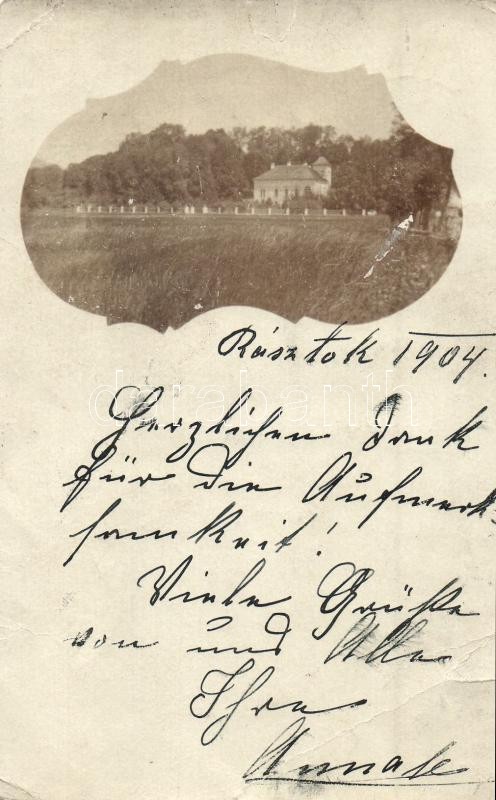 Rásztok 1904.
Herzlichen Dank
für die Aufmerk-
samkeit!
Viele Grüße
von und Alle
Ihre
darabanth